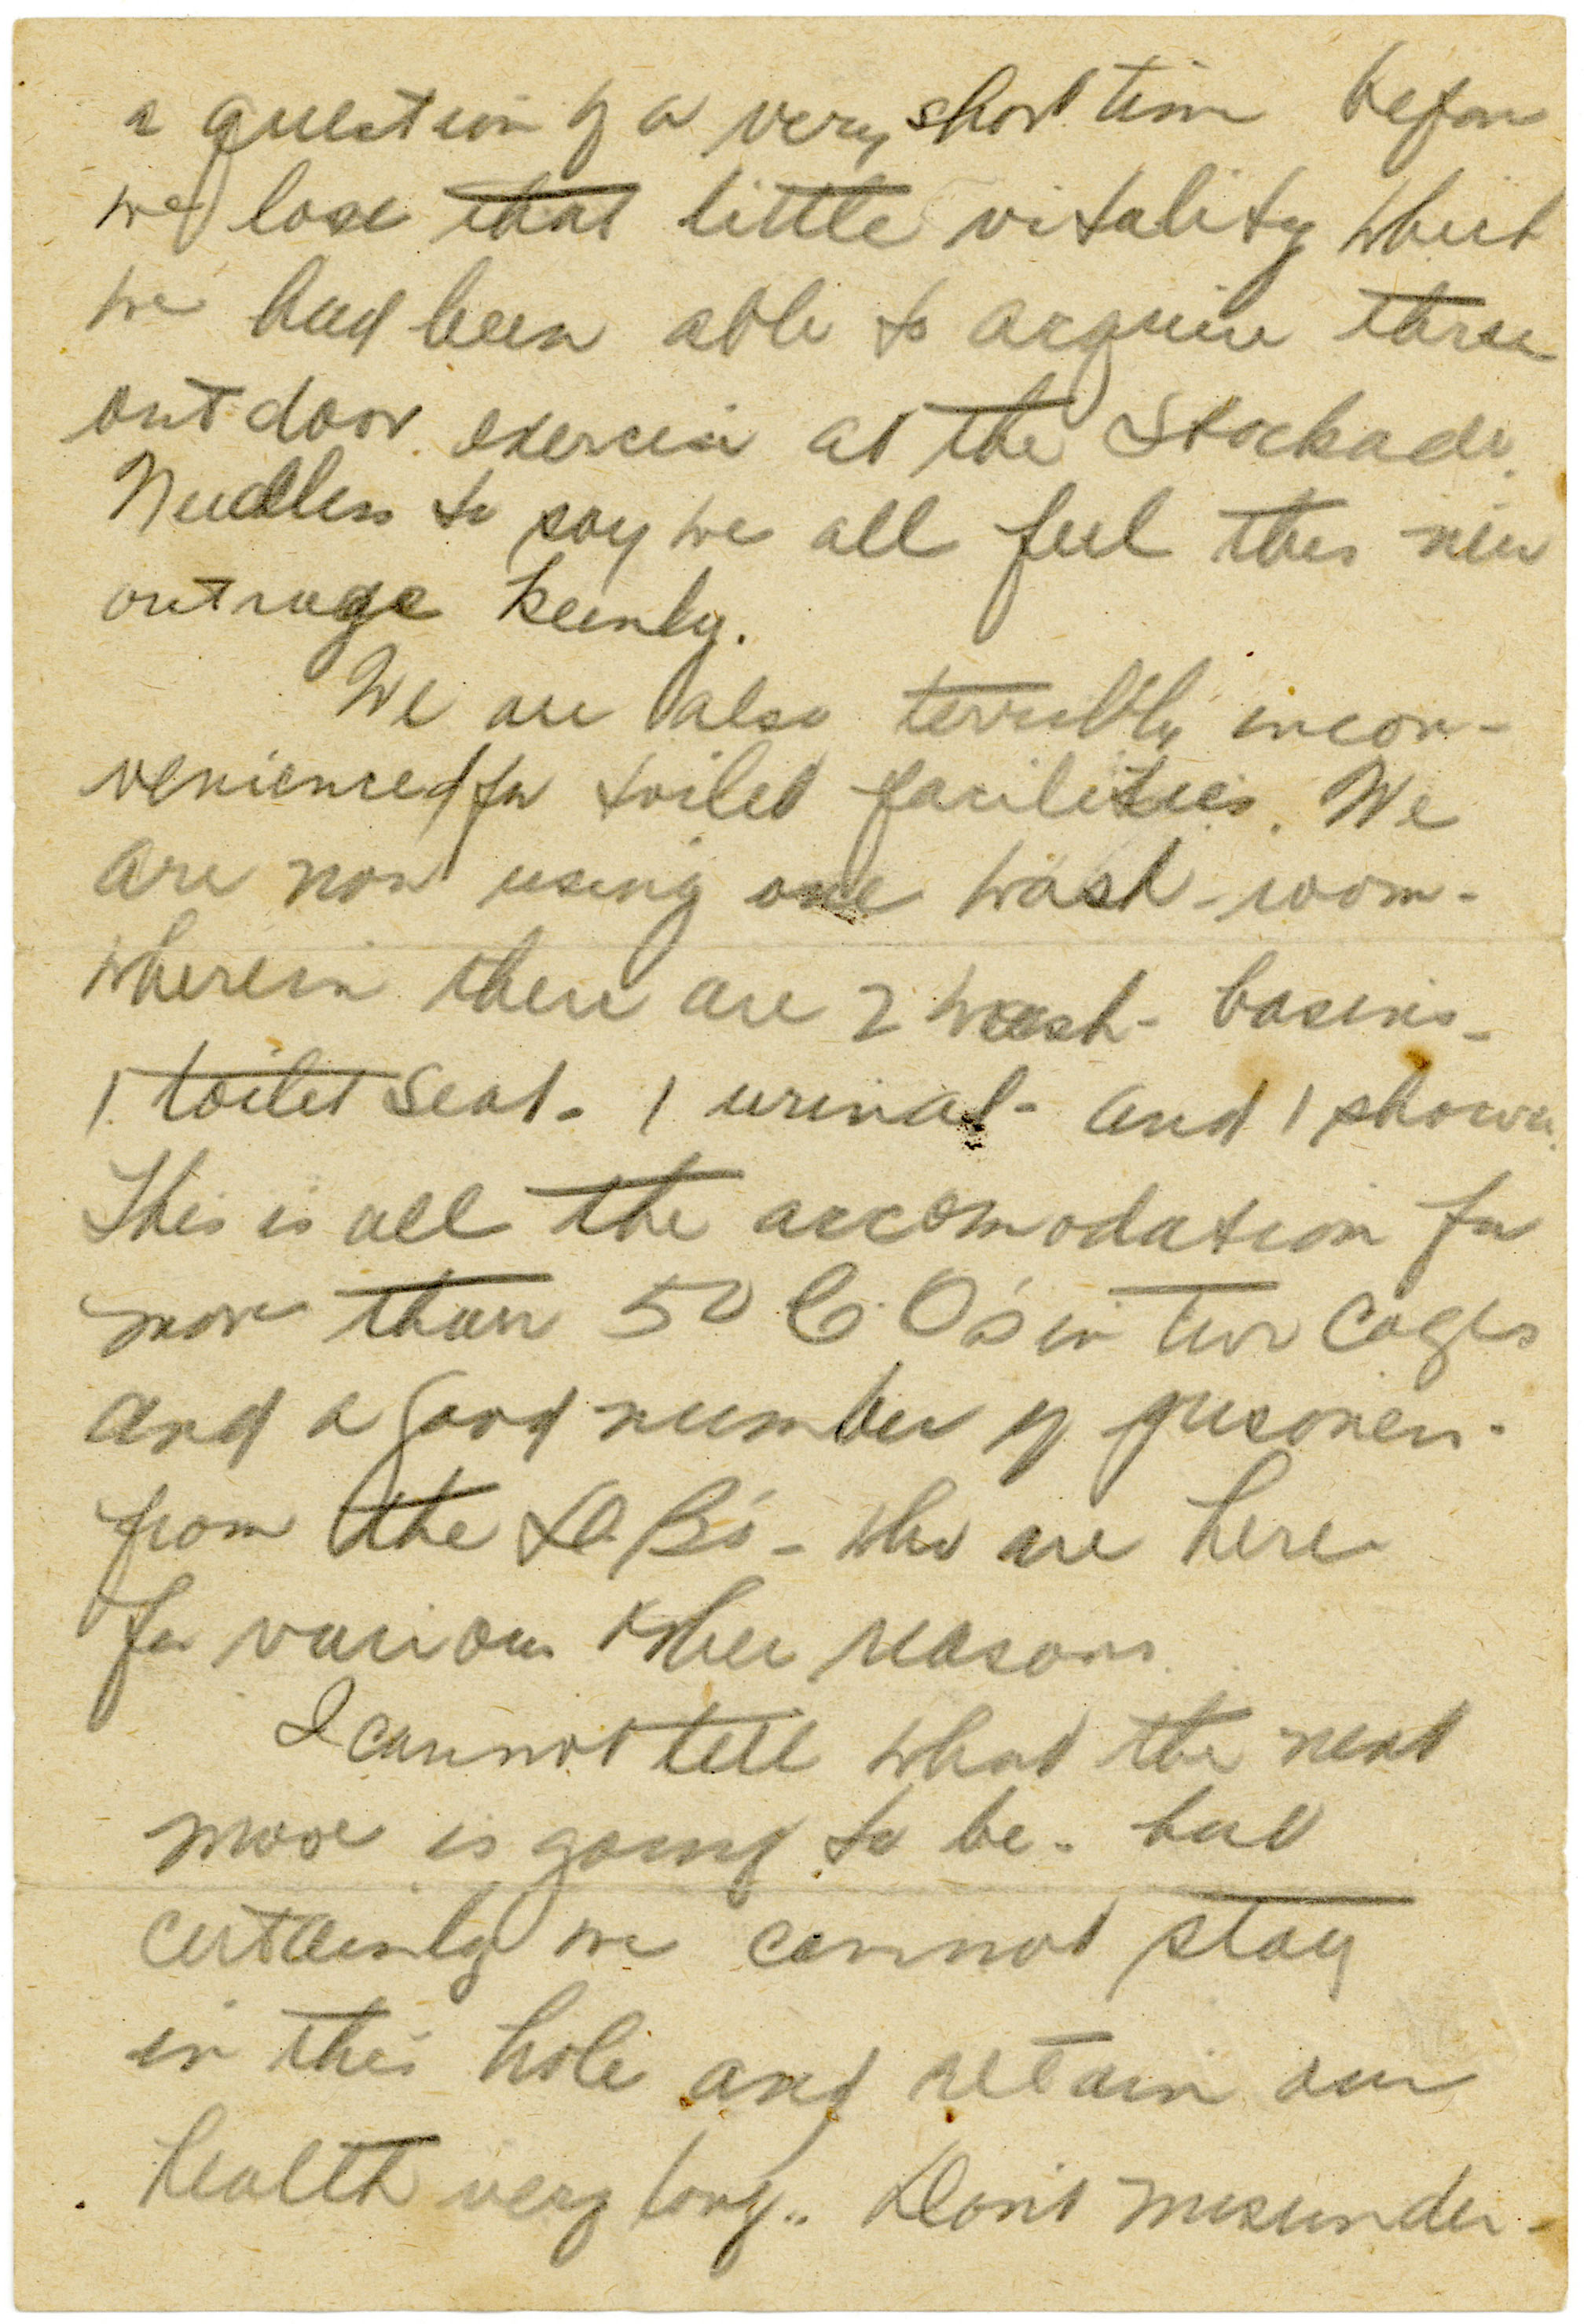 a question of a very short time before
we lose that little vitality which
we had been able to acquire thru
outdoor exercise at the Stockade.
Needless to say we all feel this new
outrage keenly.
We are also terribly incon-
venienced for toilet facilities. We
are now using one wash-room-
wherein there are 2 wash-basins-
1 toilet seat- 1 urinal- and 1 shower.
This is all the accomodation for
more than 50 C.O's in two cages
and a good number of prisoners-
from the D.B's- who are here
for various other reasons.
I cannot tell what the next
move is going to be- but
certainly we cannot stay
in this hole and retain our
health very long.. Don't misunder-